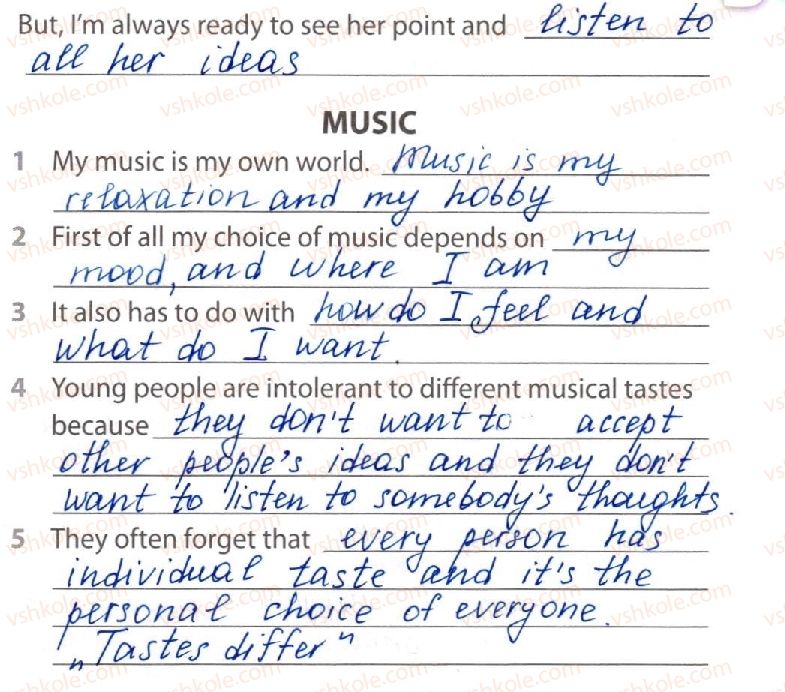 But, I'm always ready to see her point and listen to
all her ideas
MUSIC
1 My music is my own world. Music is my
relaxation and my hobby
2 First of all my choice of music depends on my
mood, and where I am
3 It also has to do with how do I feel and
what do I want.
4 Young people are intolerant to different musical tastes
because they don't want to accept
other people's ideas and they don't
want to listen to somebody's thoughts.
5 They often forget that every person has
individual taste and it's the
personal choice of everyone.
„Tastes differ"